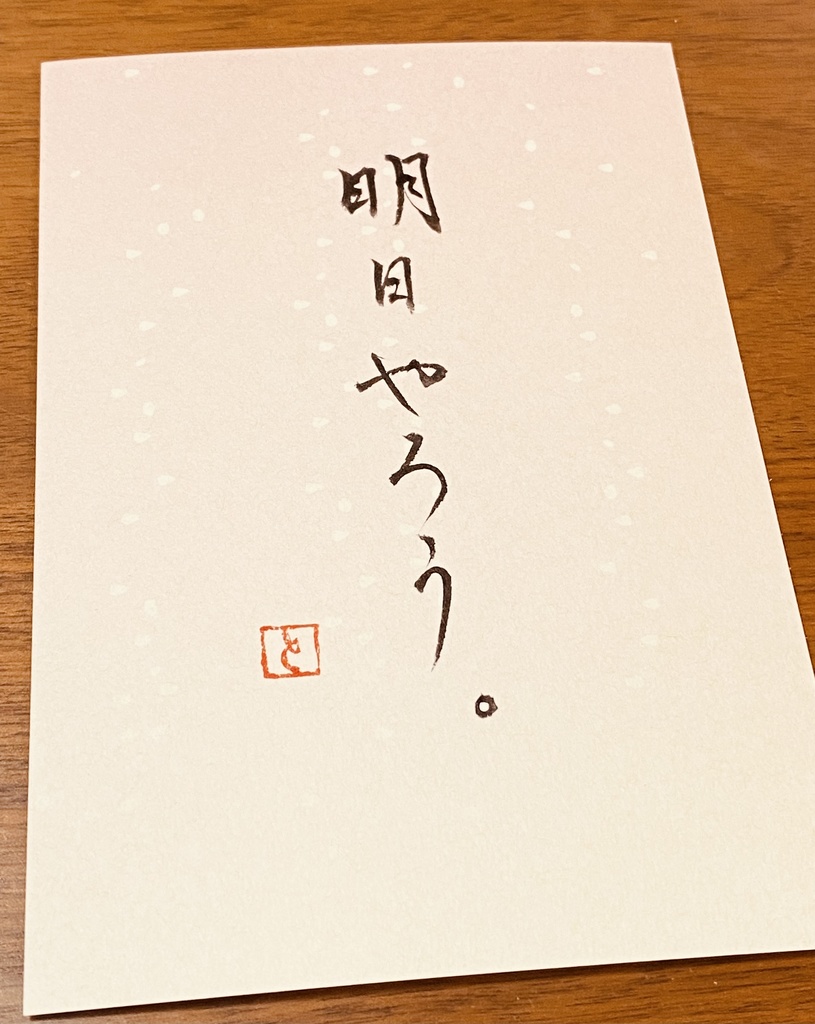 明日やろう。
と